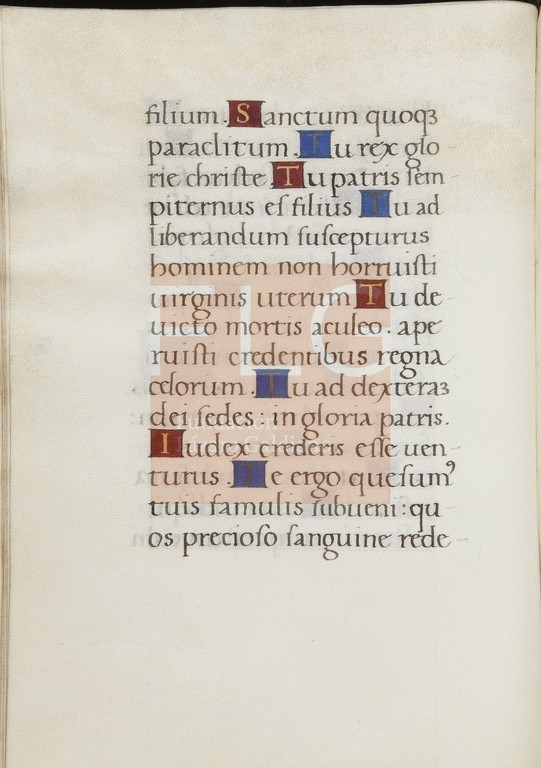 filium. Sanctum quoqꝫ
paraclitum. Tu rex glo
rie chriſte Tu patris ſem
piternus eſ filius Tu ad
liberandum ſuſcepturus
hominem non horruiſti
uirginis uterum Tu de-
uicto mortis aculeo. ape
ruiſti credentibus regna
celorum. Tu ad dexteraꝫ
dei ſedes: in gloria patris.
Iudex crederis eſſe uen-
turus. Te ergo queſumꝰ
tuis famulis ſubueni: qu
os precioſo ſanguine rede-
FLG